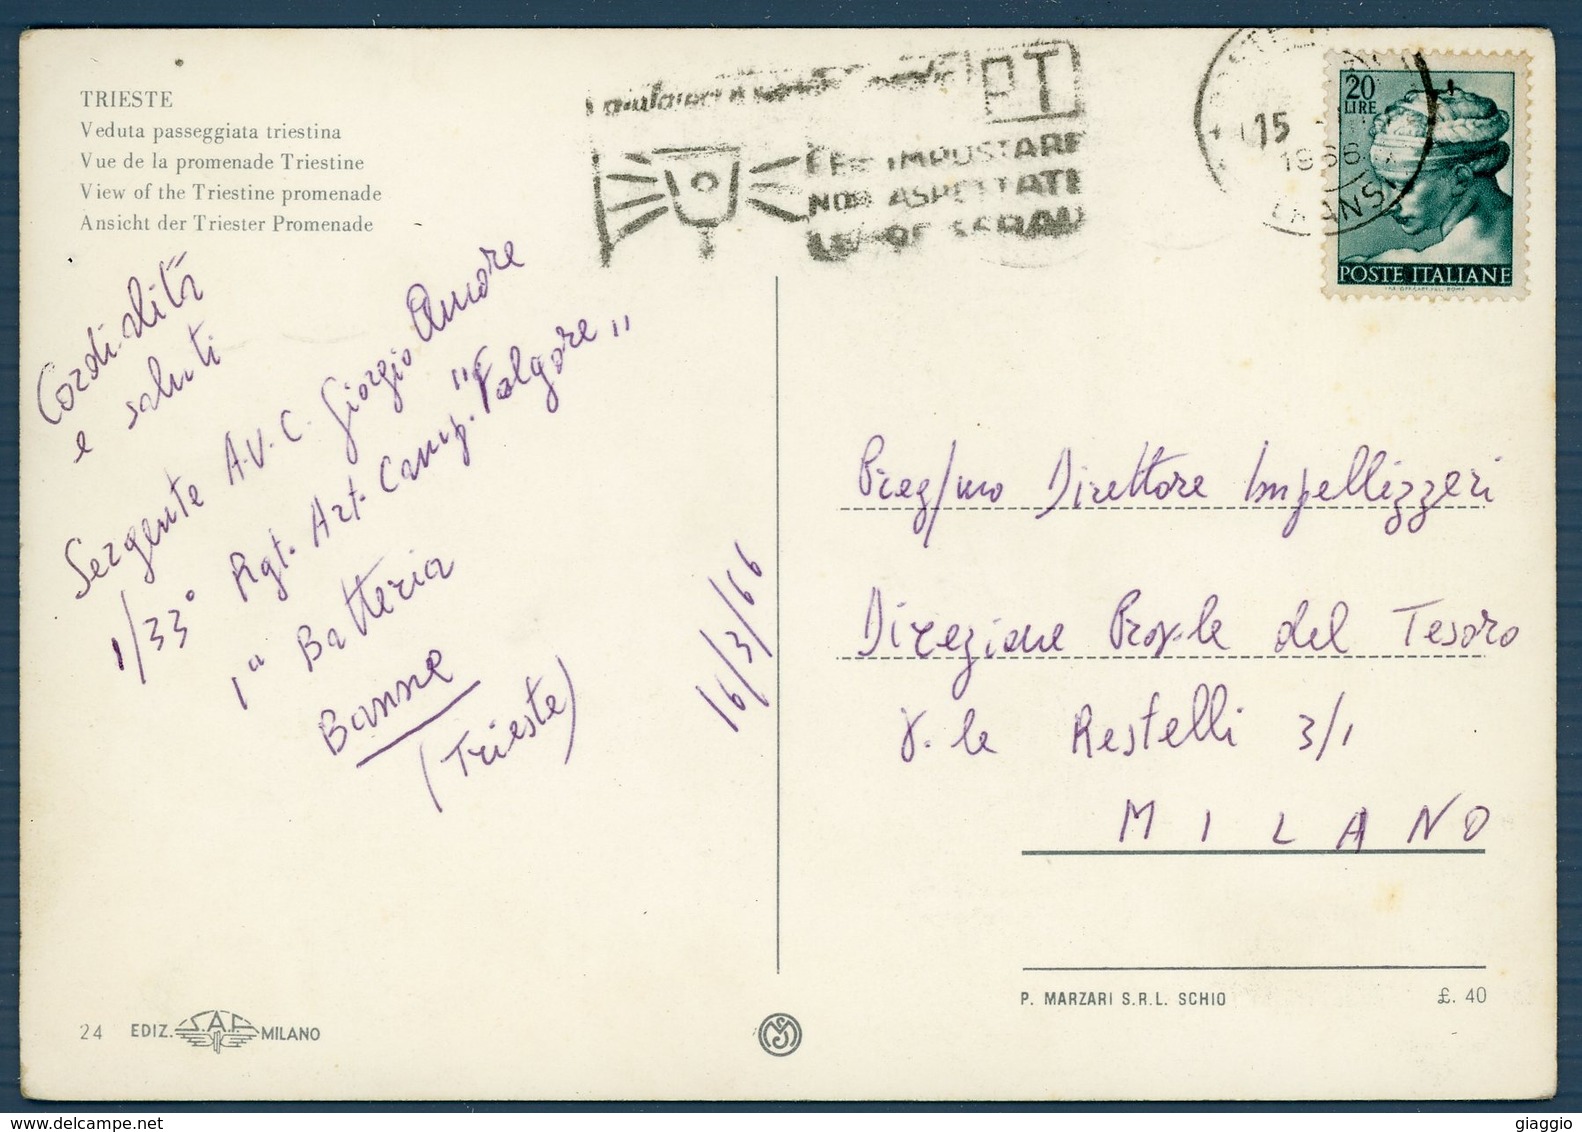 TRIESTE
Veduta passeggiata triestina
Vue de la promenade Triestine
View of the Triestine promenade
Ansicht der Triester Promenade
PT
PER IMPOSTARE
NON ASPETTATE
LE ORE SERALI
15
1966
20
LIRE
POSTE ITALIANE
Cordialità
e saluti
Sergente A.V.C. Giorgio Amore
1/33° Rgt. Art. Camp. "Folgore"
1ª Batteria
Banne
(Trieste)
16/3/66
Preg/mo Direttore Impellizzeri
Direzione Prov.le del Tesoro
V.le Restelli 3/1
MILANO
P. MARZARI S.R.L. SCHIO
£. 40
24 EDIZ. S.A.F. MILANO
delcampe.net
giaggio